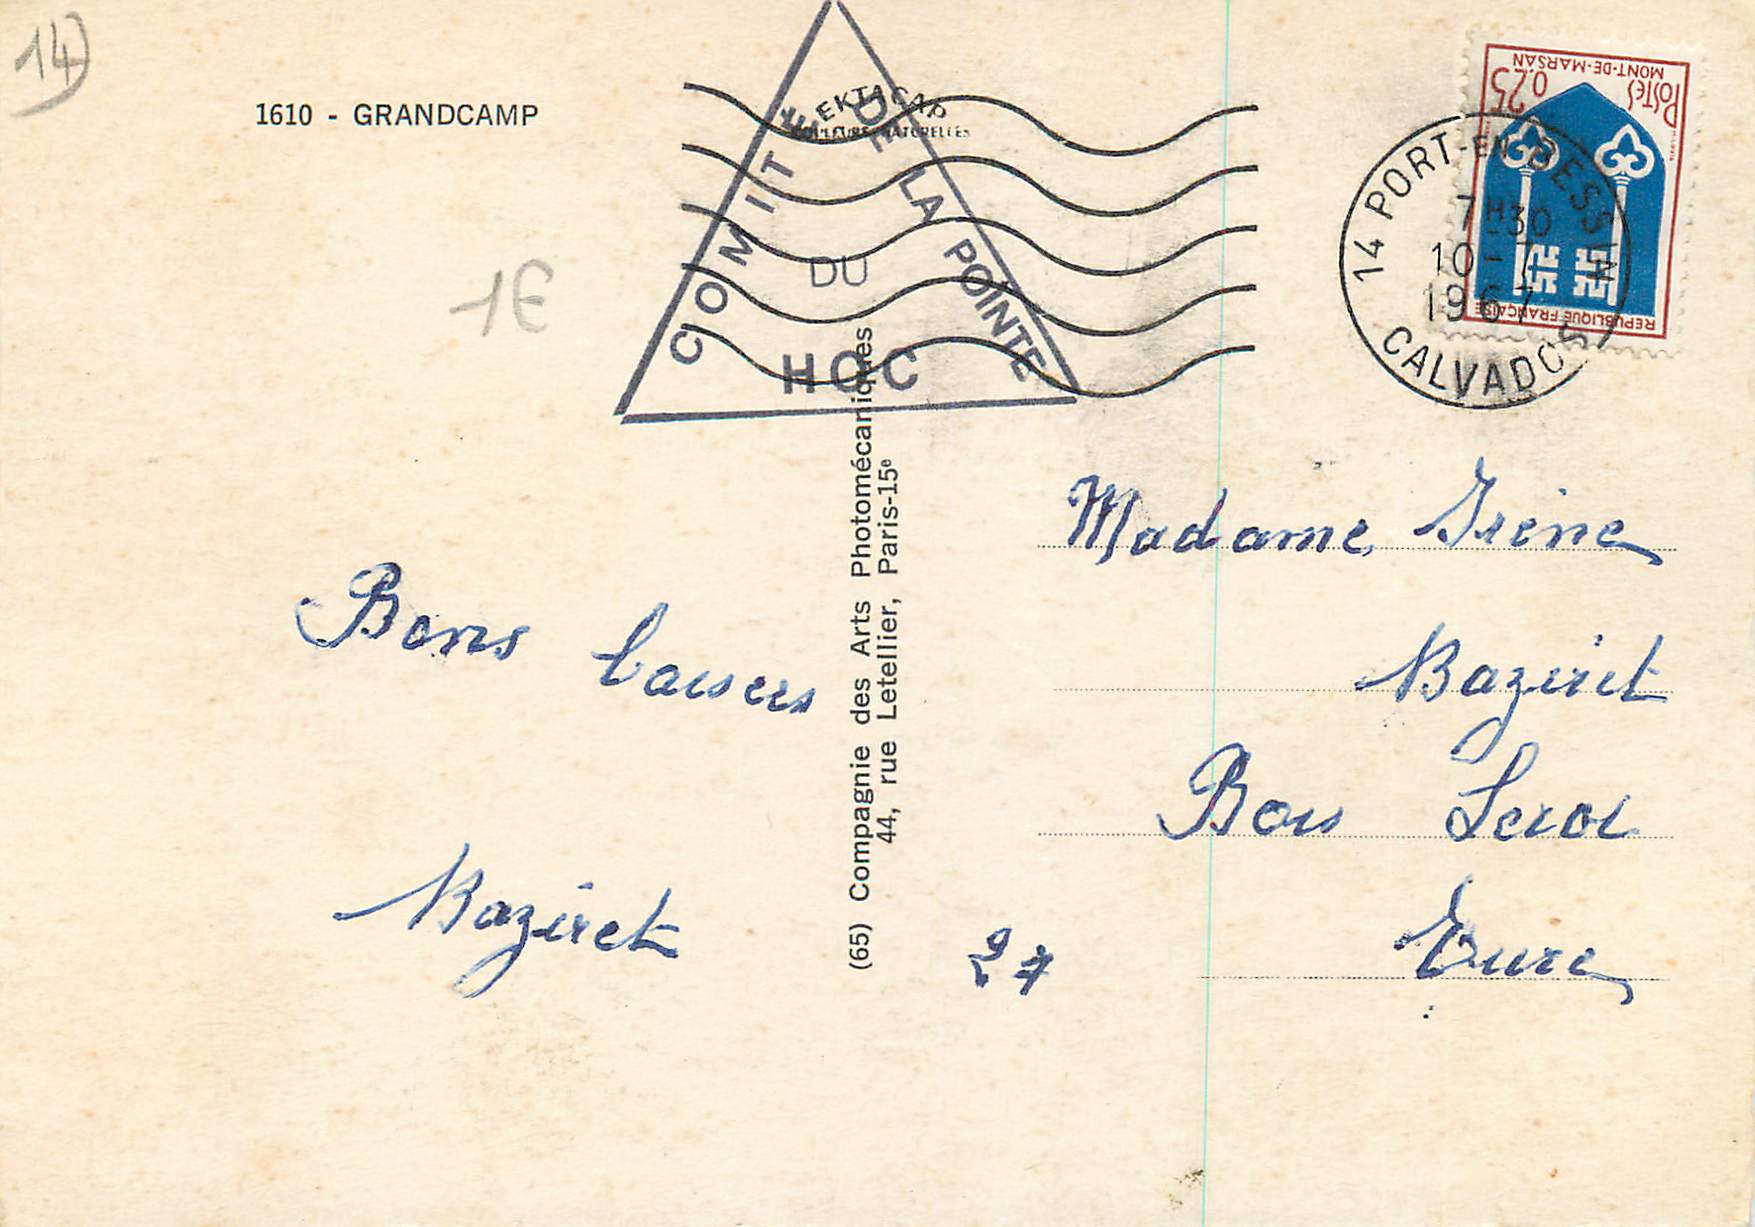 14)
1610 - GRANDCAMP
EKTACAP
COULEURS NATURELLES
COMITÉ DE LA POINTE
DU
HOC
1E
POSTES
0.25
MONT-DE-MARSAN
REPUBLIQUE FRANÇAISE
14 PORT-EN-BESSIN
7H30
10-7
1967
CALVADOS
Bons baisers
Baziret
(65) Compagnie des Arts Photomécaniques
44, rue Letellier, Paris-15e
Madame Irène
Baziret
Bois Leroi
27 Eure